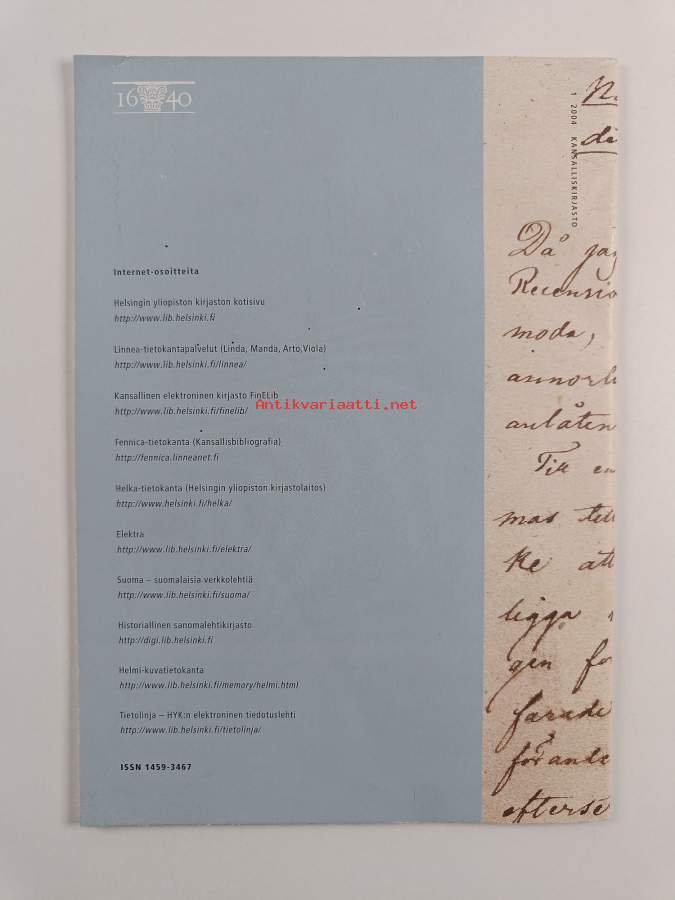 16 40
Internet-osoitteita
Helsingin yliopiston kirjaston kotisivu
http://www.lib.helsinki.fi
Linnea-tietokantapalvelut (Linda, Manda, Arto,Viola)
http://www.lib.helsinki.fi/linnea/
Kansallinen elektroninen kirjasto FinELib
http://www.lib.helsinki.fi/finelib/
Antikvariaatti.net
Fennica-tietokanta (Kansallisbibliografia)
http://fennica.linneanet.fi
Helka-tietokanta (Helsingin yliopiston kirjastolaitos)
http://www.lib.helsinki.fi/helka/
Elektra
http://www.lib.helsinki.fi/elektra/
Suoma – suomalaisia verkkolehtiä
http://www.lib.helsinki.fi/suoma/
Historiallinen sanomalehtikirjasto
http://digi.lib.helsinki.fi
Helmi-kuvatietokanta
http://www.lib.helsinki.fi/memory/helmi.html
Tietolinja – HYK:n elektroninen tiedotuslehti
http://www.lib.helsinki.fi/tietolinja/
ISSN 1459-3467
1 2004 KANSALLISKIRJASTO
di
Då jag
Recensio
moda,
annorl
anlåten
Till en
mas till
ke att
ligga
gen fo
farade
förande
efterse